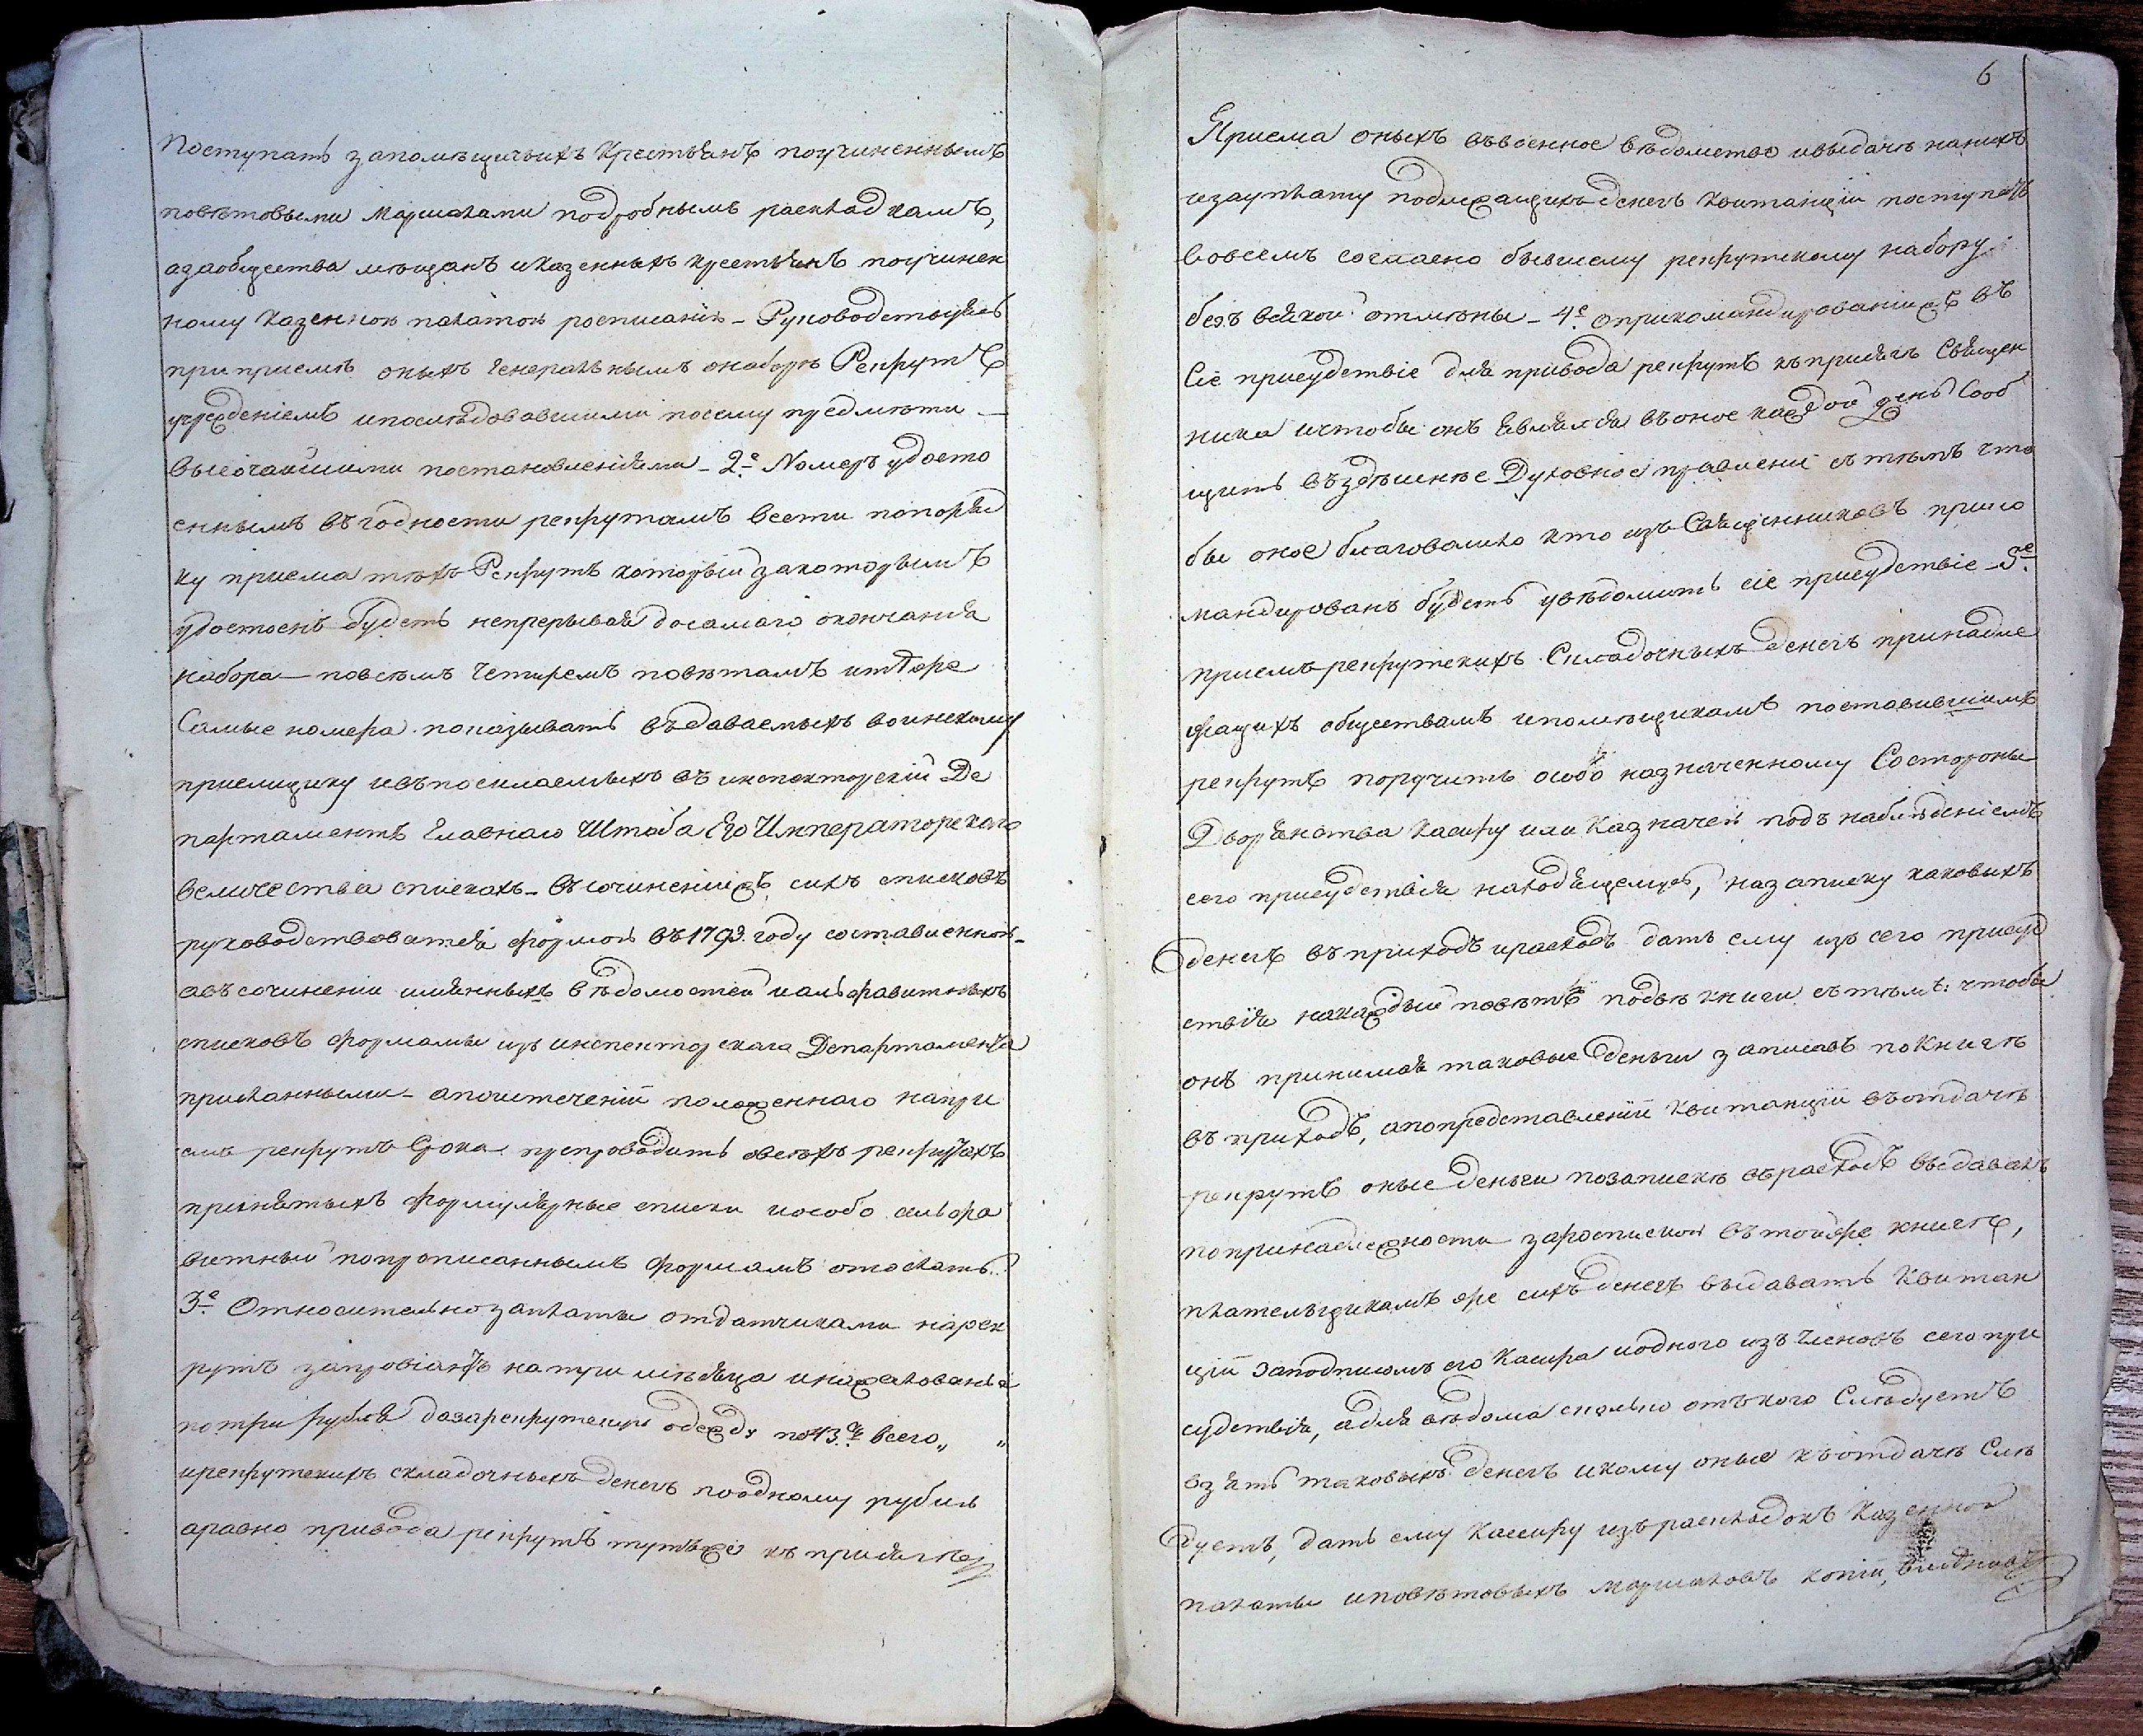 Поступать запомѣщичьихъ Крестьянъ поучиненнымъ
повѣтовыми Маршалами подробнымъ раскладкамъ,
азаобщества мѣщанъ иказенныхъ крестьянъ поучинен
ному казенною палатою росписанію – Руководствуясь
приприемѣ оныхъ генеральнымъ онаборѣ Рекрутъ
учрежденіемъ ипослѣдовавшими посему предмѣти –
высочайшими постановленіями – 2е. Номеръ удосто
еннымъ въгодности рекрутамъ вести попоряд
ку приема тѣхъ Рекрутъ который закоторымъ
удостоенъ будетъ непрерывая досамаго окончанія
набора – повсемъ четыремъ повѣтамъ итѣже
Самые номера показывать въдаваемыхъ воинскому
приемщику ивъпосилаемыхъ въ инспекторскій Де
партаментъ Главнаго Штаба Его Императорскаго
величества спискахъ – Въсочиненіяхъ сихъ списковъ
руководствоватся формою въ1793. году составленною –
авъсочиненіи имянныхъ вѣдомостей иальфавитныхъ
списковъ формами изъ инспекторскаго Департамента
присланными – апоистеченій положеннаго наприе
емъ рекрутъ Срока препроводить овсехъ рекрутахъ
принятыхъ формулярные списки иособо альфа
витный попрописаннымъ формамъ отослать.
3е. Относительнозаплаты отдатчиками нарек
рутъ запровіантъ натри мѣсяца инажалованья
потри рубля дазарекрутскую одежду по43. всего „ „
ирекрутскихъ складочныхъ денегъ поодному рублю
аравно привода рекрутъ тутъже къ присягѣ
6
Приема оныхъ въвоенное вѣдомство ивыдачѣ нанихъ
изауплату подлежащихъ денегъ квитанціи поступать
вовсемъ согласно бывшему рекрутскому набору
безъ всякой отмѣны – 4е. Оприкомандированіи въ
Сіе присудствіе для привода рекрутъ къприсягѣ Священ
ника ичтобы онъ являлся въоное каждой день Сооб
щить въздѣшнѣе Духовное правленіе стѣмъ что
бы оное благоволило кто изъ Священниковъ прико
мандированъ будетъ увѣдомить сіе присудствіе – 5е.
приемъ рекрутскихъ Складочныхъ денегъ принадле
жащихъ обществамъ ипомѣщикамъ поставившимъ
рекрутъ поручить особо назначенному Состороны
Дворянства Касиру или Казначею подъ наблюденіемъ
сего присудствія находящемуся, назаписку каковыхъ
денегъ въприходъ ирасходъ дать ему изъ сего присуд
ствія накаждый повѣтъ подвѣ книги стѣмъ: чтобы
онъ принимая таковые деньги записавъ покнигѣ
въприходъ, апопредставленіи квитанціи въотдачѣ
рекрутъ оные деньги позаписке върасходъ выдавалъ
попринадлежности заросписой втойже книгѣ,
плательщикамъ же сихъ денегъ выдавать Квитан
ціи заподписомъ его Касира иодного изъ членовъ сего при
судствія, адля вѣдома сколько откого Слѣдуетъ
взять таковыхъ денегъ икому оные къотдачѣ Слѣ
дуетъ, дать ему Касиру изъраскладокъ Казенной
палаты иповѣтовыхъ маршаловъ копіи,